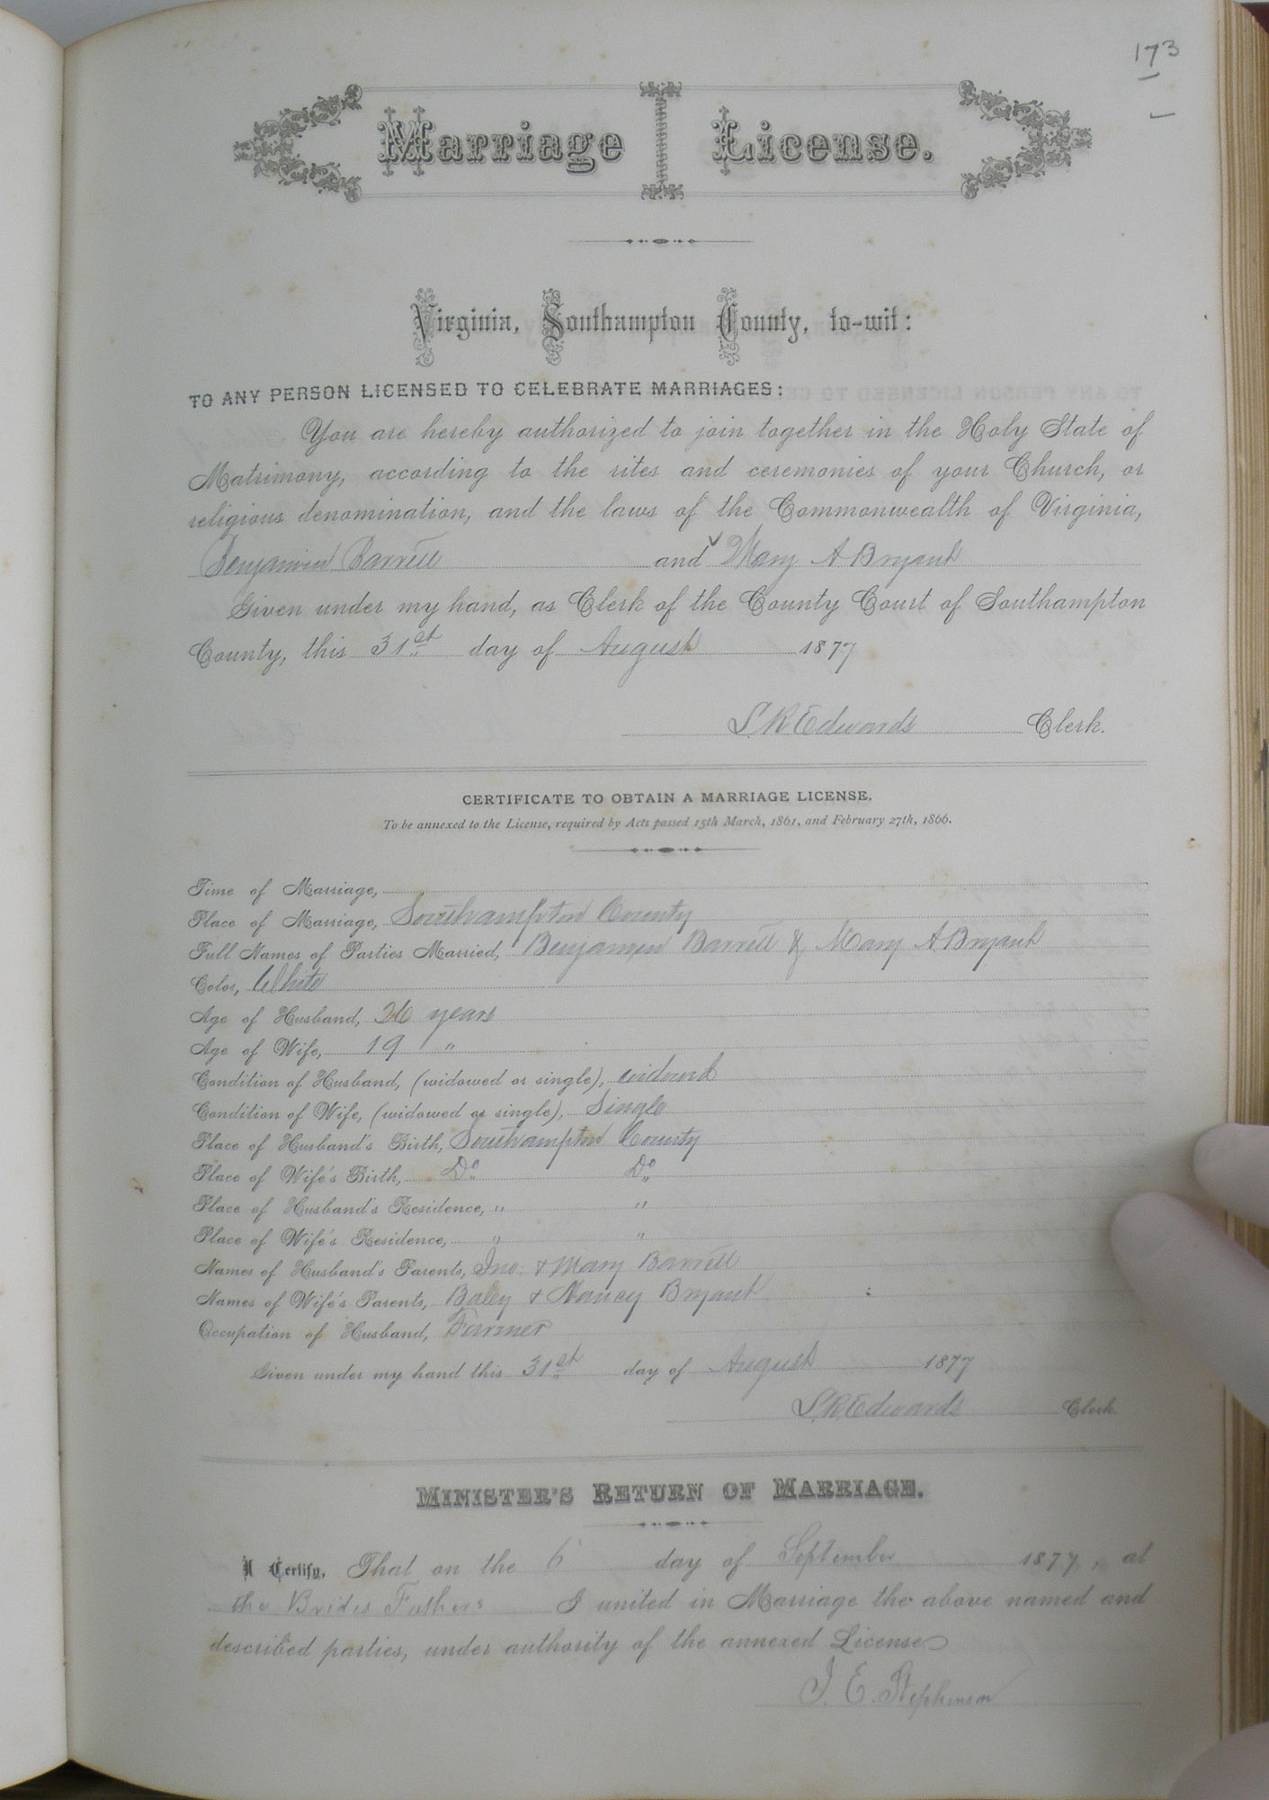 173
Marriage License.
Virginia, Southampton County, to-wit:
TO ANY PERSON LICENSED TO CELEBRATE MARRIAGES:
You are hereby authorized to join together in the Holy State of
Matrimony, according to the rites and ceremonies of your Church, or
religious denomination, and the laws of the Commonwealth of Virginia,
Benjamin Barrett and Mary A Bryant
Given under my hand, as Clerk of the County Court of Southampton
County, this 31st day of August 1877
L. R. Edwards Clerk.
CERTIFICATE TO OBTAIN A MARRIAGE LICENSE.
To be annexed to the License, required by Acts passed 15th March, 1861, and February 27th, 1866.
Time of Marriage,
Place of Marriage, Southampton County
Full Names of Parties Married, Benjamin Barrett & Mary A Bryant
Color, White
Age of Husband, years
Age of Wife, 19 "
Condition of Husband, (widowed or single), widowd
Condition of Wife, (widowed or single), Single
Place of Husband's Birth, Southampton County
Place of Wife's Birth, Do Do
Place of Husband's Residence, " "
Place of Wife's Residence, " "
Names of Husband's Parents, Jno. & Mary Barrett
Names of Wife's Parents, Baley & Nancy Bryant
Occupation of Husband, Farmer
Given under my hand this 31st day of August 1877
L. R. Edwards Clerk
MINISTER'S RETURN OF MARRIAGE.
I Certify, That on the 6 day of September 1877, at
the Brides Fathers I united in Marriage the above named and
described parties, under authority of the annexed License
J. E. Stephenson